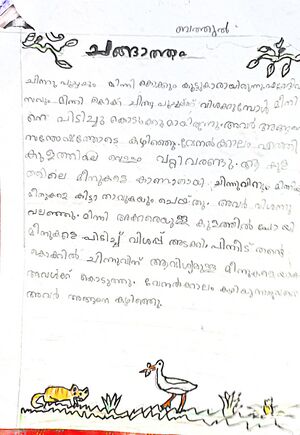 ബത്തൂൽ
ചങ്ങാത്തം
ചിന്നു പൂച്ചയും മിന്നി കൊക്കും കൂട്ടുകാരായിരുന്നു. എല്ലാദിവ
സവും മിന്നി കൊക്ക് ചിന്നു പൂച്ചയ്ക്ക് വിശക്കുമ്പോൾ മീനി
നെ പിടിച്ചു കൊടുക്കുമായിരുന്നു. അവർ അങ്ങനെ
സന്തോഷത്തോടെ കഴിഞ്ഞു. വേനൽക്കാലം എത്തി
കുളത്തിലെ വെള്ളം വറ്റിവരണ്ടു. ആ കുള
ത്തിലെ മീനുകളെ കാണാതായി. ചിന്നുവിനും മിന്നി
മീനുകളെ കിട്ടാ താവുകയും ചെയ്തു. അവർ വിശന്നു
വലഞ്ഞു. മിന്നി അകലെയുള്ള കുളത്തിൽ പോയി
മീനുകളെ പിടിച്ച് വിശപ്പ് അടക്കി. പിന്നീട് തന്റെ
കൊക്കിൽ ചിന്നുവിന് ആവശ്യമുള്ള മീനുകളെ
അവൾക്ക് കൊടുത്തു. വേനൽക്കാലം കഴിയുന്നതുവരെ
അവർ അങ്ങനെ കഴിഞ്ഞു.